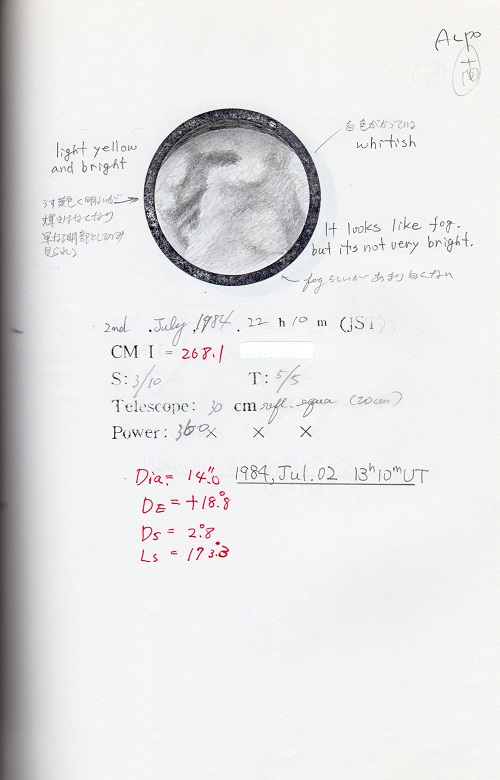 ALPO
南
白色がかっている
whitish
light yellow
and bright
うす黄色く明るいが
輝きはなくなり
単なる明部としてのみ
見られる
It looks like fog.
but its not very bright.
fogらしいが あまり白くない
2nd . July , 1984 . 22 h 10 m (JST)
CM I = 268.1
S: 3/10 T: 5/5
Telescope: 30 cm refl. equa (20cm)
Power: 360× × ×
Dia. = 14".0 1984, Jul. 02 13h10mUT
DE = +18°.8
Ds = 2°.8
Ls = 173°.3